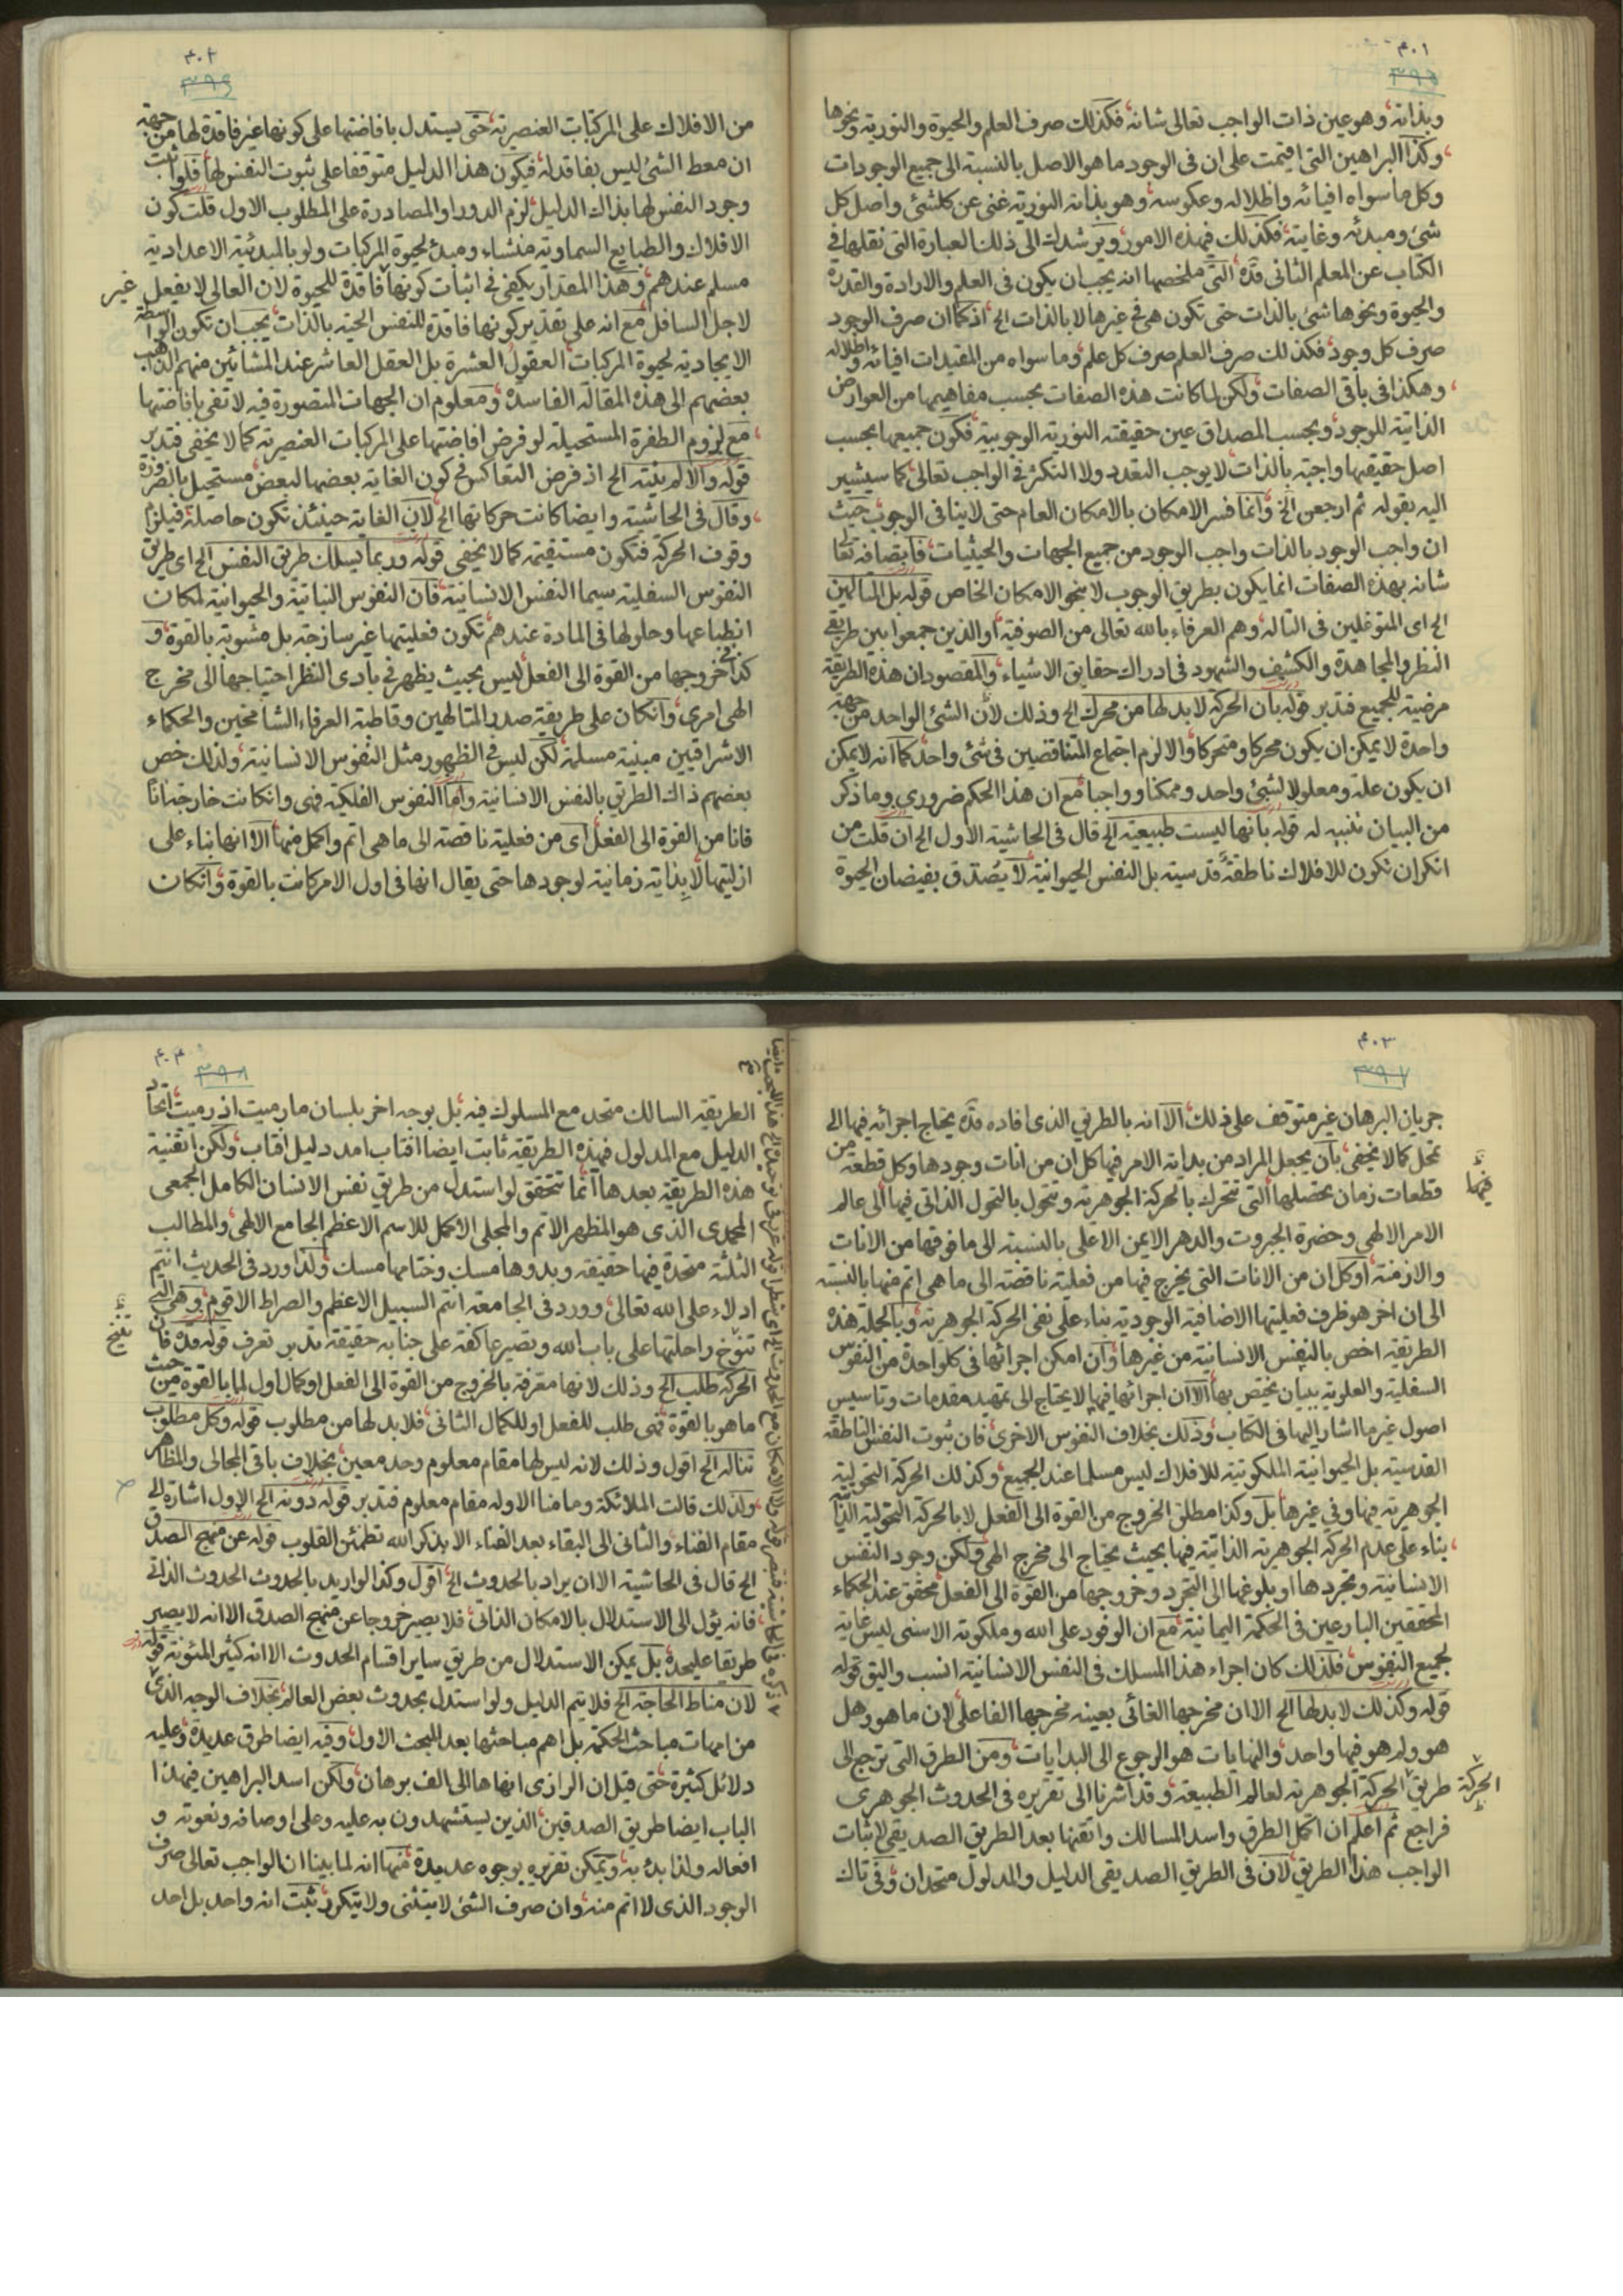 ٤٠١
٣٩٥
وبذاته وهو عين ذات الواجب تعالى شانه فكذلك صرف العلم والحيوة والنورية ونحوها
وكذا البراهين التى اقيمت على ان فى الوجود ما هو الاصل بالنسبة الى جميع الوجودات
وكل ما سواه افيائه واظلاله وعكوسه وهو بذاته النورية غنى عن كلشئ واصل كل
شئ ومبدئه وغايته فكذلك فهذه الامور ويرشدك الى ذلك العبارة التى نقلها فى
الكتاب عن المعلم الثانى قده التى ملخصها انه يجب ان يكون فى العلم والارادة والقدرة
والحيوة ونحوها شئ بالذات حتى تكون هى فى غيرها لا بالذات الخ اذ كما ان صرف الوجود
صرف كل وجود فكذلك صرف العلم صرف كل علم وما سواه من المقيدات افيائه واظلاله
وهكذا فى باقى الصفات ولكن لما كانت هذه الصفات بحسب مفاهيمها من العوارض
الذاتية للموجود وبحسب المصداق عين حقيقته النورية الوجوبية فكون جميعها بحسب
اصل حقيقتها واجبة بالذات لا يوجب التعدد ولا التكثر فى الواجب تعالى كما سيشير
اليه بقوله ثم ارجعن الخ وانما فسر الامكان بالامكان العام حتى لا ينافى الوجوب حيث
ان واجب الوجود بالذات واجب الوجود من جميع الجهات والحيثيات فاتصافه تعالى
شانه بهذه الصفات انما يكون بطريق الوجوب لا بنحو الامكان الخاص قوله بل المتالهين
الخ اى المتوغلين فى التاله وهم العرفاء بالله تعالى من الصوفية او الذين جمعوا بين طريقى
النظر والمجاهدة والكشف والشهود فى ادراك حقايق الاشياء والمقصود ان هذه الطريقة
مرضية للجميع فتدبر قوله بان الحركة لا بد لها من محرك الخ وذلك لان الشئ الواحد من جهة
واحدة لا يمكن ان يكون محركا ومتحركا والا لزم اجتماع المتناقضين فى شئ واحد كما انه لا يمكن
ان يكون علة ومعلولا لشئ واحد وممكنا وواجبا مع ان هذا الحكم ضرورى وما ذكر
من البيان تنبيه له قوله بانها ليست طبيعية الخ قال فى الحاشية الاول الخ ان قلت من
انكر ان تكون للافلاك ناطقة قدسية بل النفس الحيوانية لا يصدق بفيضان الحيوة
٤٠٢
٣٩٦
من الافلاك على المركبات العنصرية حتى يستدل بافاضتها على كونها غير فاقدة لها من جهة
ان معط الشئ ليس بفاقد له فيكون هذا الدليل متوقفا على ثبوت النفس لها فلو اثبت
وجود النفس لها بذاك الدليل لزم الدور او المصادرة على المطلوب الاول قلت كون
الافلاك والطبايع السماوية منشاء ومبدء لحيوة المركبات ولو بالمبدئية الاعدادية
مسلم عندهم وهذا المقدار يكفى فى اثبات كونها فاقدة للحيوة لان العالى لا يفعل غير
لاجل السافل مع انه على تقدير كونها فاقدة للنفس الحية بالذات يجب ان تكون الواسطة
الايجادية لحيوة المركبات العقول العشرة بل العقل العاشر عند المشائين منهم الذاهب
بعضهم الى هذه المقالة الفاسدة ومعلوم ان الجهات المتصورة فيه لا تفى بافاضتها
مع لزوم الطفرة المستحيلة لو فرض افاضتها على المركبات العنصرية كما لا يخفى فتدبر
قوله والا لم ينته الخ اذ فرض التعاكس فى كون الغاية بعضها لبعض مستحيل بالضرورة
وقال فى الحاشية وايضا كانت حركاتها الخ لان الغاية حينئذ تكون حاصلة فيلزم
وقوف الحركة فتكون مستقيمة كما لا يخفى قوله وربما يسلك طريق النفس الخ اى طريق
النفوس السفلية سيما النفس الانسانية فان النفوس النباتية والحيوانية لمكان
انطباعها وحلولها فى المادة عندهم تكون فعليتها غير ساذجة بل مشوبة بالقوة و
كذا فى خروجها من القوة الى الفعل ليس بحيث يظهر فى بادى النظر احتياجها الى مخرج
الهى امرى وانكان على طريقة صدر المتالهين وقاطبة العرفاء الشامخين والحكماء
الاشراقيين مبنية مسلمة لكن ليس فى الظهور مثل النفوس الانسانية ولذلك خص
بعضهم ذاك الطريق بالنفس الانسانية واما النفوس الفلكية فهى وانكانت خارجة انا
فانا من القوة الى الفعل اى من فعلية ناقصة الى ما هى اتم واكمل منها الا انها بناء على
ازليتها لا بداية زمانية لوجودها حتى يقال انها فى اول الامر كانت بالقوة وانكان
٤٠٣
٣٩٧
جريان البرهان غير متوقف على ذلك الا انه بالطريق الذى افاده قده يحتاج اجرائه فيها الى
تمحل كما لا يخفى بان يجعل المراد من بداية الامر فيها كل ان من انات وجودها وكل قطعة من
فيها
قطعات زمان تحصلها التى تتحرك بالحركة الجوهرية وتتحول بالتحول الذاتى فيها الى عالم
الامر الالهى وحضرة الجبروت والدهر الايمن الاعلى بالنسبة الى ما فوقها من الانات
والازمنة او كل ان من الانات التى يخرج فيها من فعلية ناقصة الى ما هى اتم منها بالنسبة
الى ان اخر هو ظرف فعليتها الاضافية الوجودية بناء على نفى الحركة الجوهرية وبالجملة هذه
الطريقة اخص بالنفس الانسانية من غيرها وان امكن اجرائها فى كلواحدة من النفوس
السفلية والعلوية ببيان يختص بها الا ان اجرائها فيها لا يحتاج الى تمهيد مقدمات وتاسيس
اصول غير ما اشار اليها فى الكتاب وذلك بخلاف النفوس الاخرى فان ثبوت النفس الناطقة
القدسية بل الحيوانية الملكوتية للافلاك ليس مسلما عند الجميع وكذلك الحركة التحولية
الجوهرية فيها وفى غيرها بل وكذا مطلق الخروج من القوة الى الفعل لا بالحركة التحولية الذاتية
بناء على عدم الحركة الجوهرية الذاتية فيها بحيث يحتاج الى مخرج الهى ولكن وجود النفس
الانسانية وتجردها او بلوغها الى التجرد وخروجها من القوة الى الفعل محقق عند الحكماء
المحققين البارعين فى الحكمة اليمانية مع ان الوفود على الله وملكوته الاسنى ليس غاية
لجميع النفوس فلذلك كان اجراء هذا المسلك فى النفس الانسانية انسب واليق قوله
قوله وكذلك لا بد لها الخ الا ان مخرجها الغائى بعينه مخرجها الفاعلى لان ما هو وهل
هو ولم هو فيها واحد والنهايات هو الرجوع الى البدايات ومن الطرق التى ترجع الى
الحركة
طريق الحركة الجوهرية لعالم الطبيعة وقد اشرنا الى تقريره فى الحدوث الجوهرى
فراجع ثم اعلم ان اكمل الطرق واسد المسالك واتقنها بعد الطريق الصديقى لاثبات
الواجب هذا الطريق لان فى الطريق الصديقى الدليل والمدلول متحدان وفى تاك
٤٠٤
٣٩٨
الطريقة السالك متحد مع المسلوك فيه بل بوجه اخر بلسان ما رميت اذ رميت اتحاد
الدليل مع المدلول فهذه الطريقة ثابت ايضا افتاب امد دليل افتاب ولكن اتقنية
هذه الطريقة بعدها انما تتحقق لو استدل من طريق نفس الانسان الكامل الجمعى
المحمدى الذى هو المظهر الاتم والمجلى الاكمل للاسم الاعظم الجامع الالهى والمطالب
الثلثة متحدة فيها حقيقة وبدوها مسك وختامها مسك ولذا ورد فى الحديث انتم
ادلاء على الله تعالى وورد فى الجامعة انتم السبيل الاعظم والصراط الاقوم وهى التى
تنيخ
تنوخ راحلتها على باب الله وتصير عاكفة على جنابه حقيقة تدبر تعرف قوله قده فان
الحركة طلب الخ وذلك لانها معرفة بالخروج من القوة الى الفعل او كمال اول لما بالقوة من حيث
ما هو بالقوة فهى طلب للفعل او للكمال الثانى فلا بد لها من مطلوب قوله وكل مطلوب
تناله الخ اقول وذلك لانه ليس لها مقام معلوم وحد معين بخلاف باقى المجالى والمظاهر
ولذلك قالت الملائكة وما منا الا وله مقام معلوم فتدبر قوله دونه الخ الاول اشارة الى
مقام الفناء والثانى الى البقاء بعد الفناء الا بذكر الله تطمئن القلوب قوله عن منهج الصدق
الخ قال فى الحاشية الا ان يراد بالحدوث الخ اقول وكذا لو اريد بالحدوث الحدوث الذاتى
فانه يؤل الى الاستدلال بالامكان الذاتى فلا يصير خروجا عن منهج الصدق الا انه لا يصير
طريقا عليحدة بل يمكن الاستدلال من طريق ساير اقسام الحدوث الا انه كثير المئونة قوله
لان مناط الحاجة الخ فلا يتم الدليل ولو استدل بحدوث بعض العالم بخلاف الوجه الذى
من امهات مباحث الحكمة بل اهم مباحثها بعد المبحث الاول وفيه ايضا طرق عديدة وعليه
دلائل كثيرة حتى قيل ان الرازى انهاها الى الف برهان ولكن اسد البراهين فهذا
الباب ايضا طريق الصدقين الذين يستشهدون به عليه وعلى اوصافه ونعوته و
افعاله ولذا بدء به ويمكن تقريره بوجوه عديدة منها انه لما بينا ان الواجب تعالى صرف
الوجود الذى لا اتم منه وان صرف الشئ لا يتثنى ولا يتكرر ثبت انه واحد بل احد